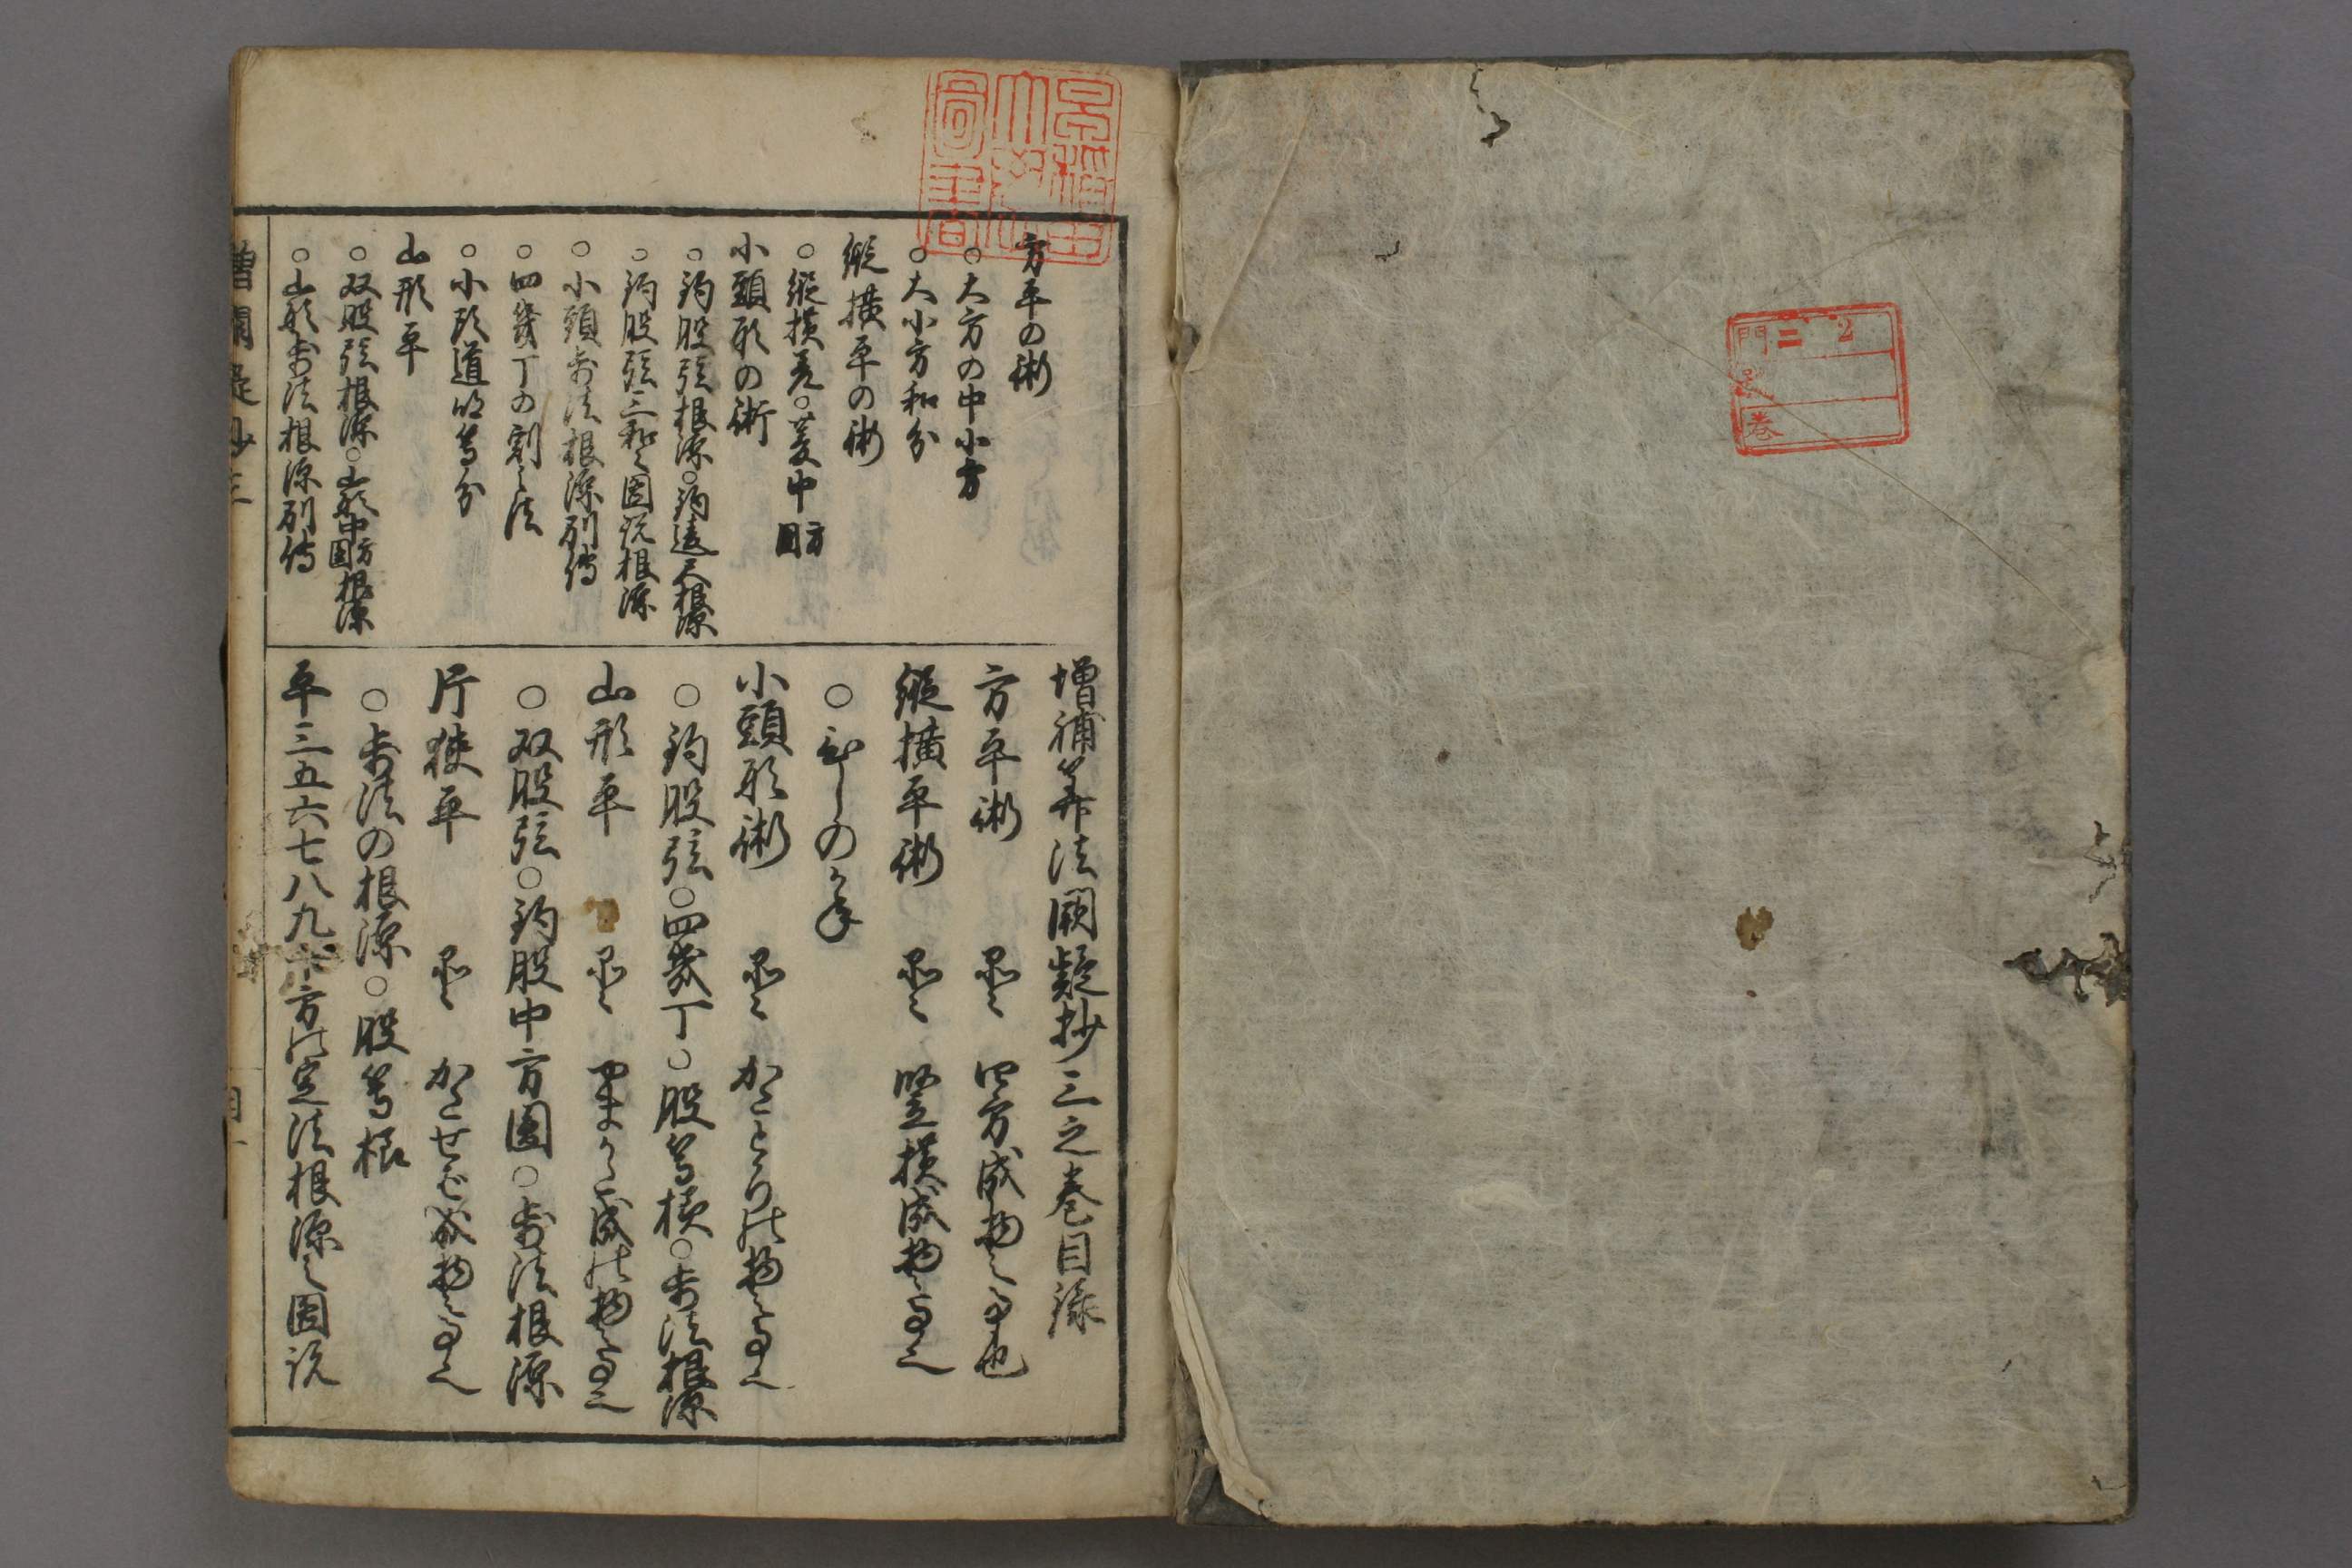 門 二 2
号
巻
早稲田
大学
圖書
方平の術
○大方の中小方
○大小方和分
縱横平の術
○縱横差○菱中方圓
小頭形の術
○鈎股弦根源○鈎遠尺根源
○鈎股弦三和之圖説根源
○小頭歩法根源別傳
○四幾丁の割之法
○小頭道
山形平
○双股弦根源○山形中方圓根源
○山形歩法根源別傳
増補算法闕疑抄三之巻目録
方平術 是ハ 四方成物之事也
縱横平術 是ハ 竪横成物之事也
○ひしのかね
小頭形術 是ハ かしらの物之事也
○鈎股弦○四幾丁○股等横○歩法根源
山形平 是ハ やまかた成物之事也
○双股弦○鈎股中方圓○歩法根源
片狹平 是ハ かたせば成物之事也
○歩法の根源○股等根
平三五六七八九十方の定法根源之圖説
増闕疑抄三
目一